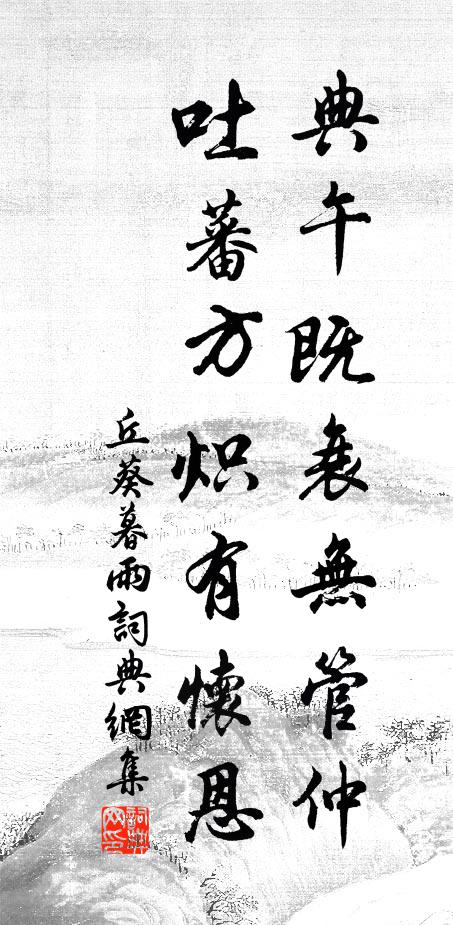 典午既衰無管仲
吐蕃方炽有懷恩
丘葵暮雨詞典網集